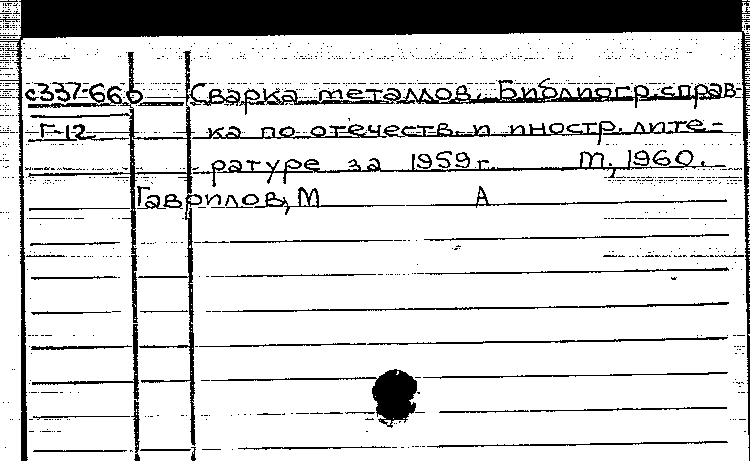 с337-660 Сварка металлов. Библиогр. справ-
Г-12 ка по отечеств. и иностр. лите-
ратуре за 1959г. М., 1960.
Гаврилов, М А